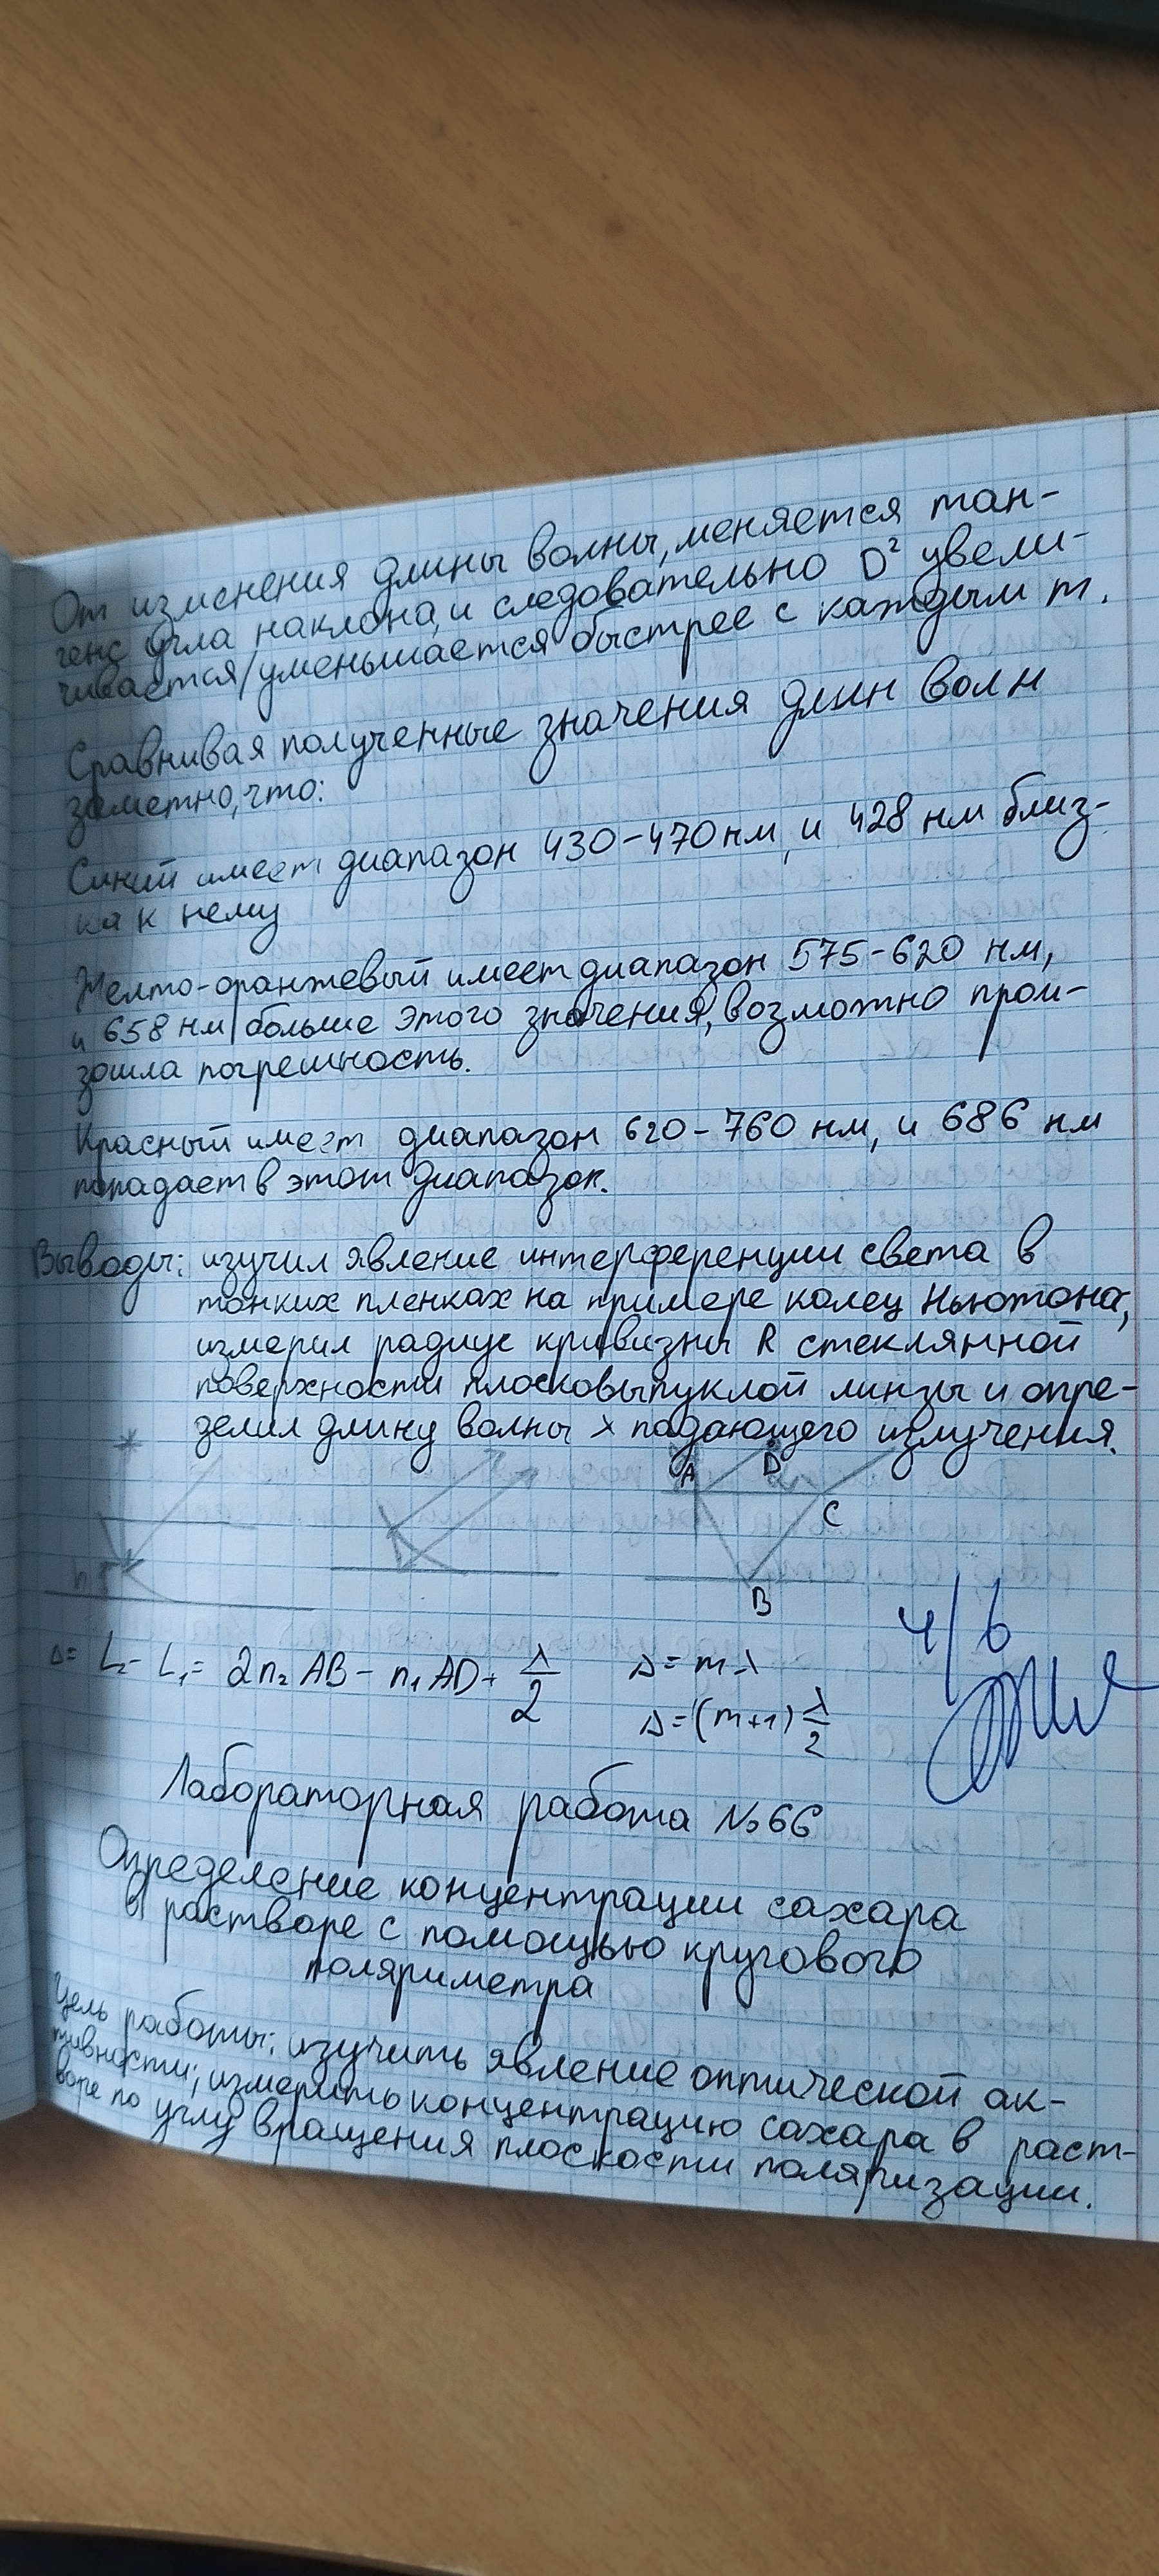 От изменения длины волны, меняется тан-
генс угла наклона, и следовательно D² увели-
чивается/уменьшается быстрее с каждым m.
Сравнивая полученные значения длин волн
заметно, что:
Синий имеет диапазон 430-470 нм, и 428 нм близ-
ка к нему
Желто-оранжевый имеет диапазон 575-620 нм,
и 658 нм больше этого значения, возможно прои-
зошла погрешность.
Красный имеет диапазон 620-760 нм, и 686 нм
попадает в этот диапазон.
Выводы: изучил явление интерференции света в
тонких пленках на примере колец Ньютона,
измерил радиус кривизны R стеклянной
поверхности плосковыпуклой линзы и опре-
делил длину волны λ падающего излучения.
A D
C
h
B
Δ= L₂- L₁= 2n₂AB - n₁AD+ λ/2 Δ= mλ
Δ=(m+1) λ/2
Лабораторная работа №66
Определение концентрации сахара
в растворе с помощью кругового
поляриметра
Цель работы: изучить явление оптической ак-
тивности; измерить концентрацию сахара в раст-
воре по углу вращения плоскости поляризации.